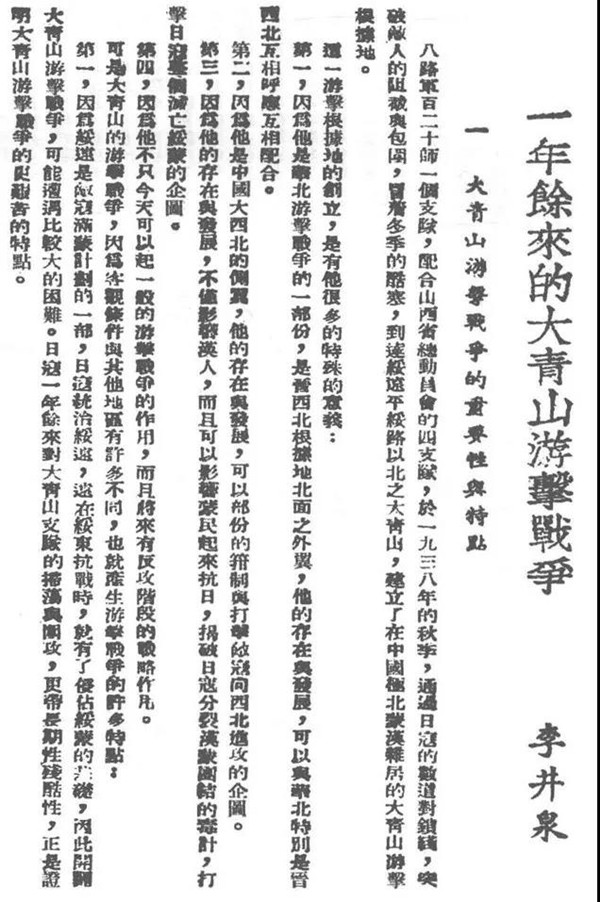 一年餘來的大青山游擊戰爭
李井泉
一 大青山游擊戰爭的重要性與特點
八路軍百二十師一個支隊,配合山西省總動員會的四支隊,於一九三八年的秋季,通過日寇的數道封鎖綫,突
破敵人的阻截與包圍,冒着冬季的酷寒,到達綏遠平綏路以北之大青山,建立了在中國極北蒙漢雜居的大青山游擊
根據地。
這一游擊根據地的創立,是有他很多的特殊的意義:
第一,因爲他是華北游擊戰爭的一部份,是晉西北根據地北面之外翼,他的存在與發展,可以與華北特別是晉
西北互相呼應互相配合。
第二,因爲他是中國大西北的側翼,他的存在與發展,可以部份的箝制與打擊敵寇向西北進攻的企圖。
第三,因爲他的存在與發展,不僅影響漢人,而且可以影響蒙民起來抗日,揭破日寇分裂漢蒙團結的毒計,打
擊日寇整個滅亡綏蒙的企圖。
第四,因爲他不只今天可以起一般的游擊戰爭的作用,而且將來有反攻階段的戰略作用。
可是大青山的游擊戰爭,因爲客觀條件與其他地區有許多不同,也就產生游擊戰爭的許多特點:
第一,因爲綏遠是敵寇滿蒙計劃的一部,日寇統治綏遠,遠在綏東抗戰時,就有了侵佔綏蒙的基礎,因此開闢
大青山游擊戰爭,可能遭遇比較大的困難。日寇一年餘來對大青山支隊的掃蕩與圍攻,更帶長期性殘酷性,正是證
明大青山游擊戰爭的更艱苦的特點。